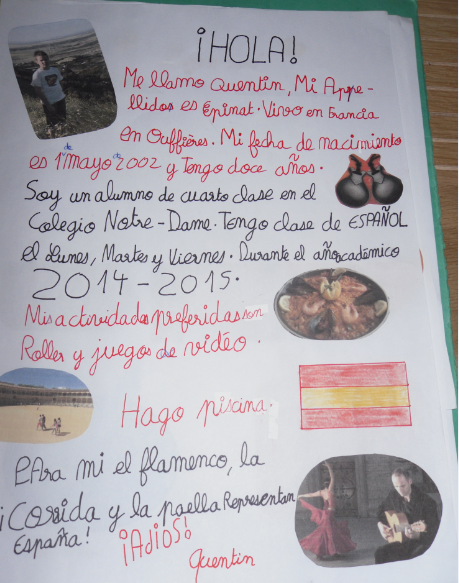 ¡HOLA!
Me llamo Quentin, Mi Appe-
llidos es Épinat. Vivo en Francia
en Ouffières. Mi fecha de nacimiento
es 1º de Mayo de 2002 y Tengo doce años.
Soy un alumno de cuarto clase en el
Colegio Notre-Dame. Tengo clase de ESPAÑOL
el Lunes, Martes y Viernes. Durante el año académico
2014-2015.
Mis actividades preferidas son
Roller y juegos de vidéo.
Hago piscina.
PARa mi el flamenco, la
¡Corrida y la paella Representan
España!
¡Adios!
Quentin